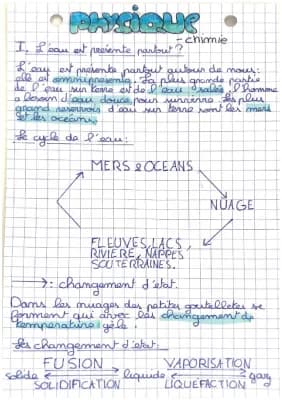 PHYSIQUE
- chimie
I. L'eau est présente partout ?
L'eau est présente partout autour de nous:
elle est omniprésente. La plus grande partie
de l'eau sur terre est de l'eau salée, l'homme
a besoin d'eau douce pour survivre. Les plus
grand reservoirs d'eau sur terre sont les mers
et les océans.
Le cycle de l'eau:
MERS & OCEANS
NUAGE
FLEUVES, LACS,
RIVIERE, NAPPES
SOUTERRAINES.
→: changement d'état.
Dans les nuages des petites goutelletes se
forment qui avec les changement de
température gèle.
Les changement d'état:
FUSION VAPORISATION
solide liquide gaz
SOLIDIFICATION LIQUEFACTION